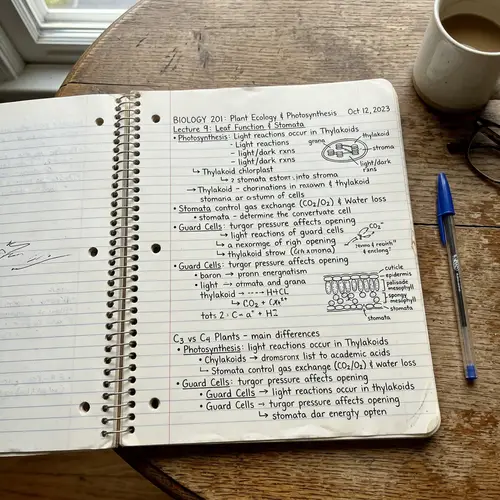 BIOLOGY 201: Plant Ecology & Photosynthesis Oct 12, 2023
Lecture 9: Leaf Function & Stomata
• Photosynthesis: Light reactions occur in Thylakoids
- Light reactions
- light/dark rxns
- light/dark rxns
grana
thylakoid
stroma
light/dark rxns
↳ Thylakoid chloroplast
↳ stomata into stroma
→ Thylakoid - in & thylakoid
of cells
• Stomata control gas exchange (CO₂/O₂) & Water loss
• stomata - determine the cell
• Guard Cells: turgor pressure affects opening
↳ light reactions of guard cells
↳ a of righ opening
↳ thylakoid
CO₂
• Guard Cells: turgor pressure affects opening
• baron → pronn energnatism
• light → and grana
thylakoid → H+CL
↳ CO₂ +
cuticle
epidermis
palisade mesophyll
spongy mesophyll
stomata
stomata
C₃ vs C₄ Plants - main differences
• Photosynthesis: light reactions occur in Thylakoids
• Chylakoids → list to academic acids
↳ Stomata control gas exchange (CO₂/O₂) & water loss
• Guard Cells: turgor pressure affects opening
• Guard Cells → light reactions occur in thylakoids
• Guard Cells → turgor pressure affects opening
↳ stomata dar energty opten